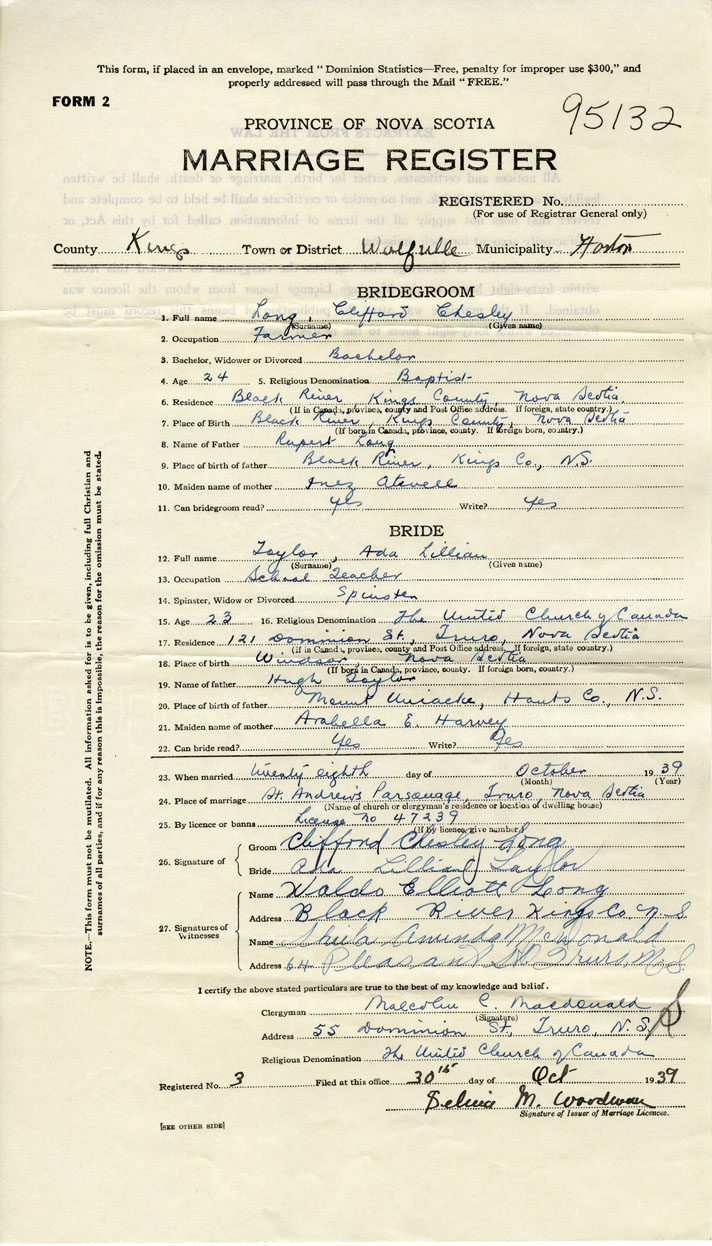 This form, if placed in an envelope, marked "Dominion Statistics—Free, penalty for improper use $300," and
properly addressed will pass through the Mail "FREE."
FORM 2
95132
PROVINCE OF NOVA SCOTIA
MARRIAGE REGISTER
REGISTERED No.
(For use of Registrar General only)
County Kings Town or District Wolfville Municipality Horton
BRIDEGROOM
1. Full name Long, Clifford Chesley
(Surname) (Given name)
2. Occupation Farmer
3. Bachelor, Widower or Divorced Bachelor
4. Age 24 5. Religious Denomination Baptist
6. Residence Black River, Kings County, Nova Scotia
(If in Canada, province, county and Post Office address. If foreign, state country.)
7. Place of Birth Black River, Kings County, Nova Scotia
(If born in Canada, province, county. If foreign born, country.)
8. Name of Father Rupert Long
9. Place of birth of father Black River, Kings Co., N.S.
10. Maiden name of mother Inez Atwell
11. Can bridegroom read? yes Write? yes
BRIDE
12. Full name Taylor, Ada Lillian
(Surname) (Given name)
13. Occupation School Teacher
14. Spinster, Widow or Divorced Spinster
15. Age 23 16. Religious Denomination The United Church of Canada
17. Residence 121 Dominion St., Truro, Nova Scotia
(If in Canada, province, county and Post Office address. If foreign, state country.)
18. Place of birth Windsor, Nova Scotia
(If born in Canada, province, county. If foreign born, country.)
19. Name of father Hugh Taylor
20. Place of birth of father Mount Uniacke, Hants Co., N.S.
21. Maiden name of mother Arabella E. Harvey
22. Can bride read? Yes Write? Yes
23. When married twenty eighth day of October 1939
(Month) (Year)
24. Place of marriage St. Andrew's Parsonage, Truro, Nova Scotia
(Name of church or clergyman's residence or location of dwelling house)
25. By licence or banns License no 47239
(If by licence, give number)
26. Signature of
Groom Clifford Chesley Long
Bride Ada Lillian Taylor
27. Signatures of Witnesses
Name Waldo Elliott Long
Address Black River Kings Co N.S
Name McDonald
Address 64 Pleasant St Truro, N.S.
I certify the above stated particulars are true to the best of my knowledge and belief.
Clergyman Malcolm C. Macdonald
(Signature)
Address 55 Dominion St, Truro, N.S.
Religious Denomination The United Church of Canada
Registered No. 3 Filed at this office 30th day of Oct 1939
M. Woodman
Signature of Issuer of Marriage Licences.
[SEE OTHER SIDE]
NOTE.—This form must not be mutilated. All information asked for is to be given, including full Christian and
surnames of all parties, and if for any reason this is impossible, the reason for the omission must be stated.